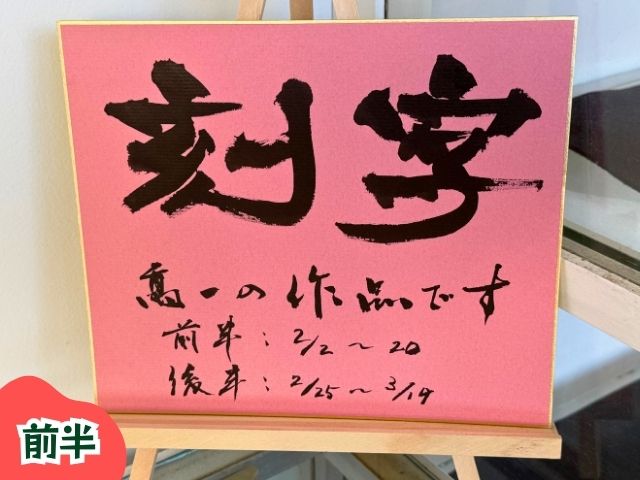 刻字
高一の作品です
前半：2/2～20
後半：2/25～3/19
前半